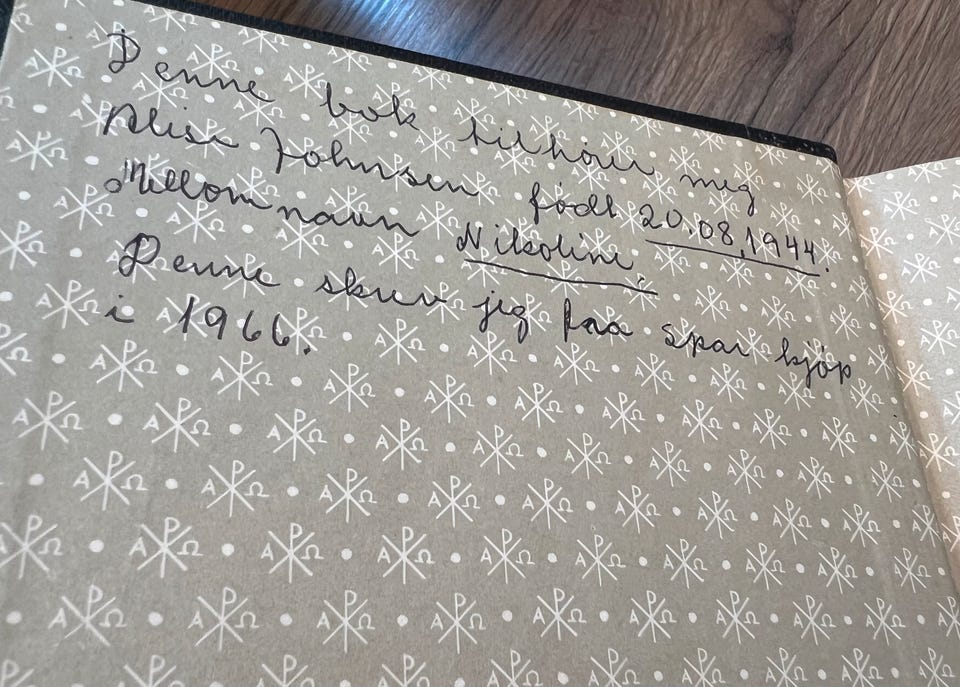 Denne bok tilhører meg
Alise Johnsen født 20.08.1944.
Mellomnavn Nikoline
Denne skrev jeg paa sparkjöp
i 1966.